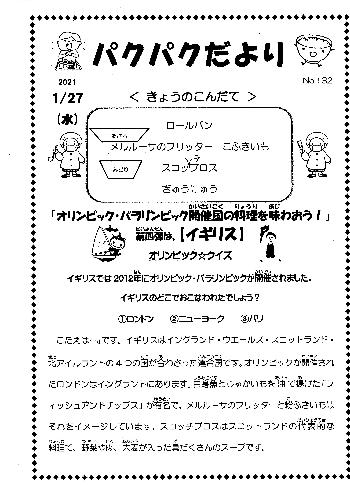 パクパクだより
2021
No.132
1/27
(水)
< きょうのこんだて >
ロールパン
メルルーサのフリッター こふきいも
スコッチブロス
みどり
ぎゅうにゅう
「オリンピック・パラリンピック開催国の料理を味わおう!」
第四弾は、【イギリス】
オリンピック☆クイズ
イギリスでは2012年にオリンピック・パラリンピックが開催されました。
イギリスのどこでおこなわれたでしょう?
①ロンドン ②ニューヨーク ③パリ
こたえは です。イギリスはイングランド・ウエールズ・スコットランド・
北アイルランドの4つの国が合わさった連合国です。オリンピックが開催され
たロンドンはイングランドにあります。白身魚とじゃがいもを油で揚げた「フ
ィッシュアンドチップス」が有名で、メルルーサのフリッターと粉ふきいもは
それをイメージしています。スコッチブロスはスコットランドの代表的な
料理で、野菜や肉、大麦が入った具だくさんのスープです。